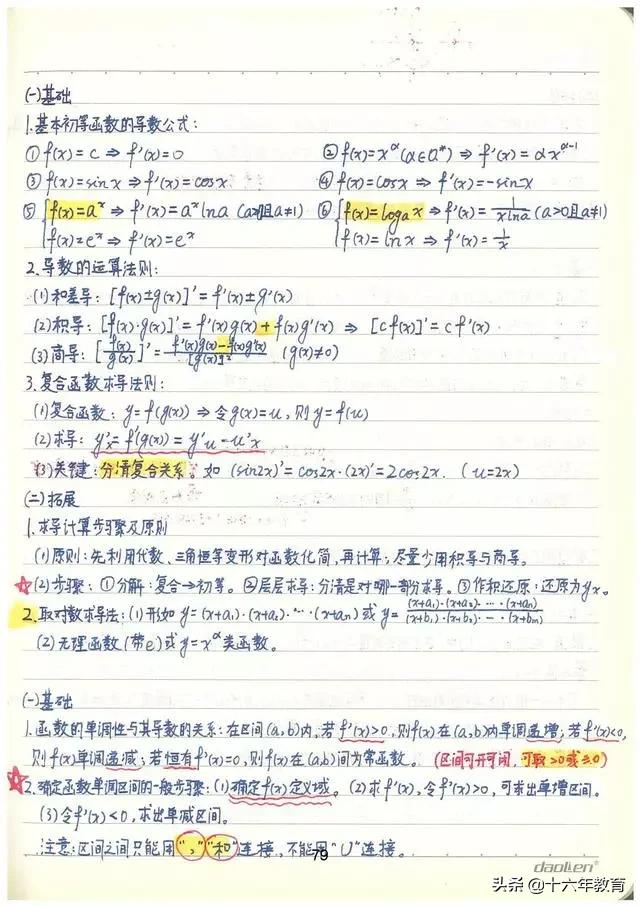 (一)基础
1.基本初等函数的导数公式:
① f(x)=c ⇒ f'(x)=0 ② f(x)=x^α(α∈Q*) ⇒ f'(x)=αx^(α-1)
③ f(x)=sinx ⇒ f'(x)=cosx ④ f(x)=cosx ⇒ f'(x)=-sinx
⑤ { f(x)=a^x ⇒ f'(x)=a^x lna (a>0且a≠1) ⑥ { f(x)=logax ⇒ f'(x)=1/(xlna) (a>0且a≠1)
f(x)=e^x ⇒ f'(x)=e^x f(x)=lnx ⇒ f'(x)=1/x
2.导数的运算法则:
(1)和差导:[f(x)±g(x)]'=f'(x)±g'(x)
(2)积导:[f(x)·g(x)]'=f'(x)g(x)+f(x)g'(x) ⇒ [cf(x)]'=cf'(x)
(3)商导:[f(x)/g(x)]'=(f'(x)g(x)-f(x)g'(x))/[g(x)]² (g(x)≠0)
3.复合函数求导法则:
(1)复合函数:y=f(g(x)) ⇒ 令g(x)=u,则y=f(u)
(2)求导:y'x=f'(g(x))=y'u-u'x
(3)关键:分清复合关系。如(sin2x)'=cos2x·(2x)'=2cos2x.(u=2x)
(二)拓展
1.求导计算步骤及原则
(1)原则:先利用代数、三角恒等变形对函数化简,再计算;尽量少用积导与商导。
(2)步骤:①分解:复合→初等。②层层求导:分清是对哪一部分求导。③作积还原:还原为yx。
2.取对数求导法:(1)形如y=(x+a₁)·(x+a₂)·…·(x+an)或y=((x+a₁)·(x+a₂)·…·(x+an))/((x+b₁)·(x+b₂)·…·(x+bm))
(2)无理函数(带e)或y=x^α类函数。
(一)基础
1.函数的单调性与其导数的关系:在区间(a,b)内,若f'(x)>0,则f(x)在(a,b)内单调递增;若f'(x)<0,
则f(x)单调递减;若恒有f'(x)=0,则f(x)在(a,b)间为常函数。(区间可开可闭,可取>0或≥0)
2.确定函数单调区间的一般步骤:(1)确定f(x)定义域。(2)求f'(x),令f'(x)>0,可求出单增区间。
(3)令f'(x)<0,求出单减区间。
注意:区间之间只能用“,”“和”连接,不能用“∪”连接。
79
daolien®
头条@十六年教育